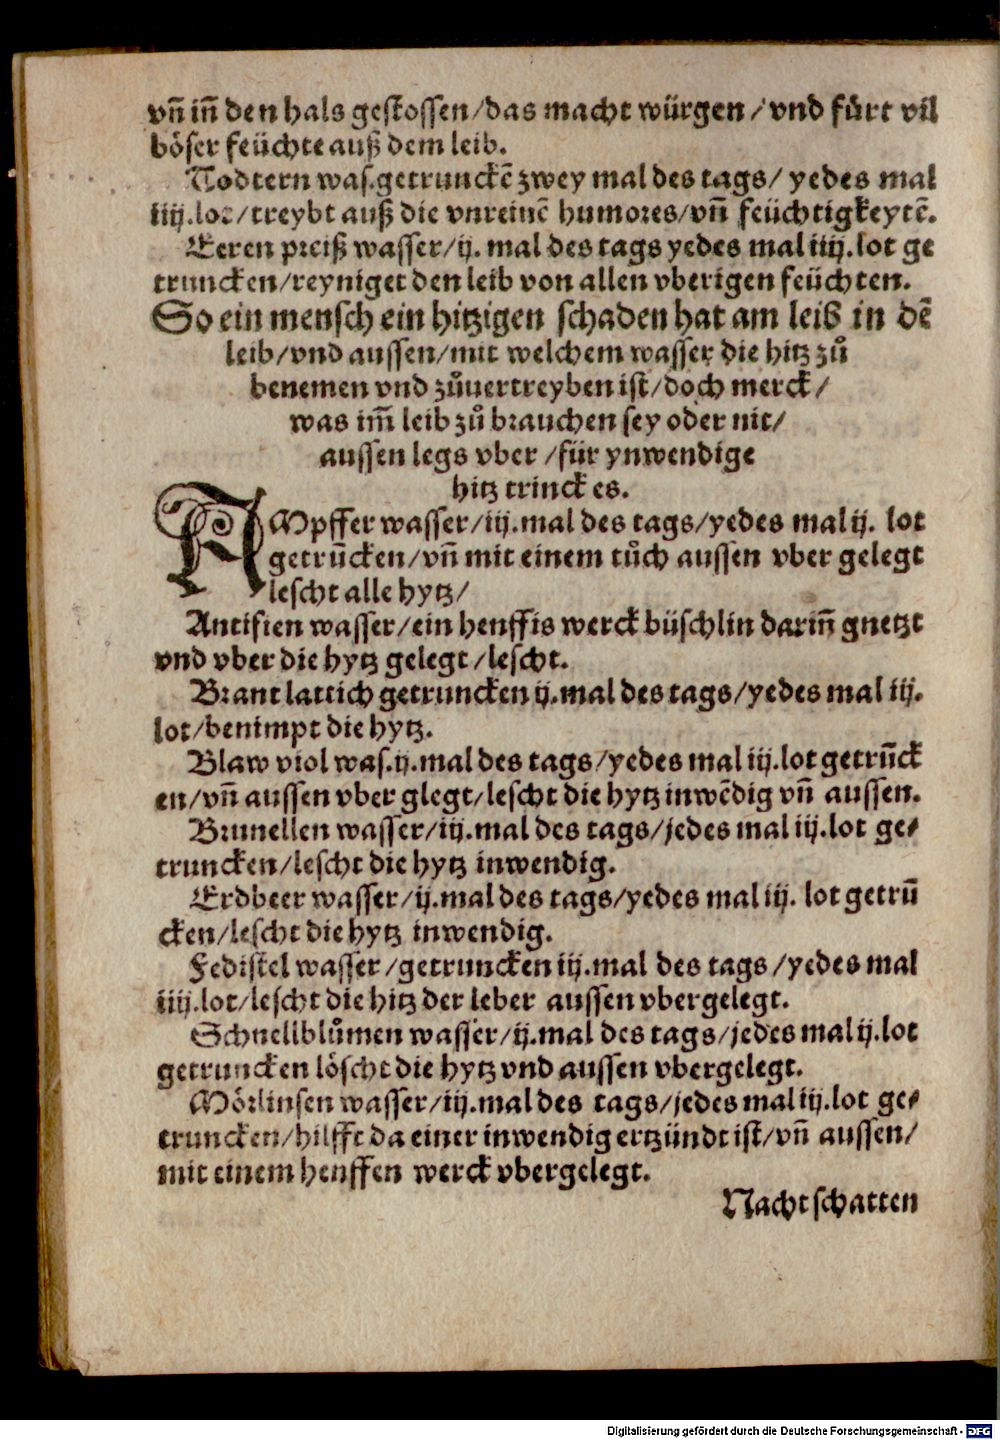 vñ iñ den hals gestossen/das macht würgen/vnd fůrt vil
böser feüchte auß dem leib.
Nodtern was.getrunckẽ zwey mal des tags/ yedes mal
iiij.lot/treybt auß die vnreinẽ humores/vñ feüchtigkeytẽ.
Eeren preiß wasser/ij. mal des tags yedes mal iiij.lot ge
truncken/reyniget den leib von allen vberigen feüchten.
So ein mensch ein hitzigen schaden hat am leib in dẽ
leib/vnd aussen/mit welchem wasser die hitz zů
benemen vnd zůuertreyben ist/doch merck/
was im̃ leib zů brauchen sey oder nit/
aussen legs vber/für ynwendige
hitz trinck es.
AMpffer wasser/iij.mal des tags/yedes mal ij. lot
getrũcken/vñ mit einem tůch aussen vber gelegt
lescht alle hytz/
Antifien wasser/ein henffis werck büschlin dariñ gnetzt
vnd vber die hytz gelegt/lescht.
Brant lattich getruncken ij.mal des tags/yedes mal iij.
lot/benimpt die hytz.
Blaw viol was.ij.mal des tags/yedes mal iij.lot getrũck
en/vñ aussen vber glegt/lescht die hytz inwẽdig vñ aussen.
Brunellen wasser/iij.mal des tags/jedes mal iij.lot ge⸗
truncken/lescht die hytz inwendig.
Erdbeer wasser/ij.mal des tags/yedes mal iij. lot getrũ
cken/lescht die hytz inwendig.
Fedistel wasser/getruncken iij.mal des tags/yedes mal
iiij.lot/lescht die hitz der leber aussen vbergelegt.
Schnellblůmen wasser/ij.mal des tags/jedes mal ij.lot
getruncken löscht die hytz vnd aussen vbergelegt.
Mörlinsen wasser/iij.mal des tags/jedes mal iij.lot ge⸗
truncken/hilfft da einer inwendig ertzündt ist/vñ aussen/
mit einem henffen werck vbergelegt.
Nachtschatten
Digitalisierung gefördert durch die Deutsche Forschungsgemeinschaft - DFG